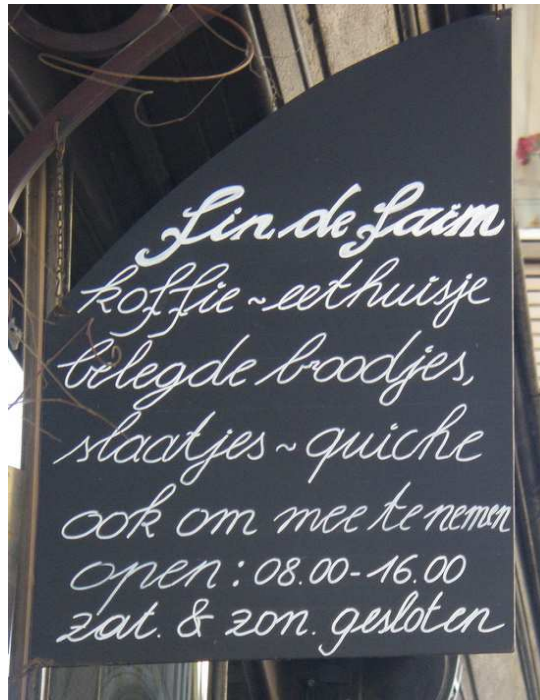 fin de faim
koffie ~ eethuisje
belegde broodjes,
slaatjes ~ quiche
ook om mee te nemen
open : 08.00 - 16.00
zat. & zon. gesloten